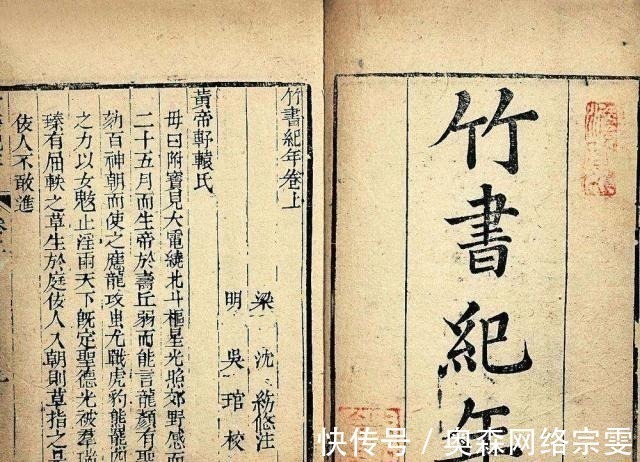 竹書紀年
竹書紀年卷上
梁 沈 注
明 吳琯校
黃帝軒轅氏
母曰附寶見大電繞北斗樞星光照郊野感而
二十五月而生帝於壽丘弱而能言龍顏有聖
劾百神朝而使之應龍攻蚩尤戰虎豹熊羆
之力以女魃止淫雨天下既定聖德光被羣瑞
臻有屈軼之草生於庭佞人入朝則草指之
佞人不敢進
快传号 / 奥森网络宗雯